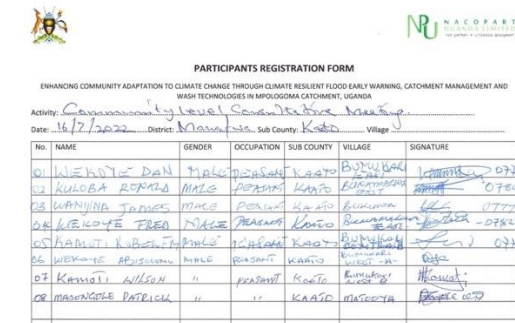 NACOPART
UGANDA LIMITED
PARTICIPANTS REGISTRATION FORM
ENHANCING COMMUNITY ADAPTATION TO CLIMATE CHANGE THROUGH CLIMATE RESILIENT FLOOD EARLY WARNING, CATCHMENT MANAGEMENT AND
WASH TECHNOLOGIES IN MPOLOGOMA CATCHMENT, UGANDA
Activity: Community Level Consultative Meeting.
Date: 16/7/2022 District: Manafwa Sub County: Kaato Village
No. NAME GENDER OCCUPATION SUB COUNTY VILLAGE SIGNATURE
01 WEKOYE DAN MALE PEASANT KAATO BUMUKARI EAST
02 KULOBA RONALD MALE PEASANT KAATO EAST
03 WANJINA JAMES MALE PEASANT KAATO
04 WEKOYE FRED MALE PEASANT KAATO EAST
05 KAMOTI ROBERT MALE PEASANT KAATO
06 WEKOYE MALE PEASANT KAATO BUMUKARI WEST -A-
07 KAMOTI WILSON " PEASANT Kaato Bumukari West B
08 MASONGOLE PATRICK " " KAATO MATOOYA